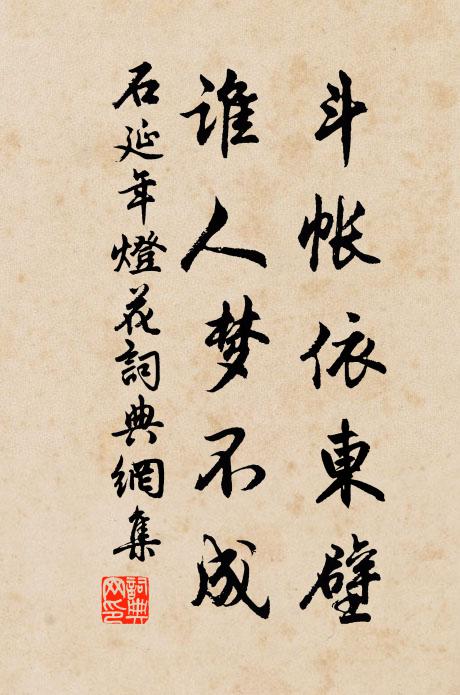 斗帐依東壁
谁人梦不成
石延年燈花詞典網集
詞典网印